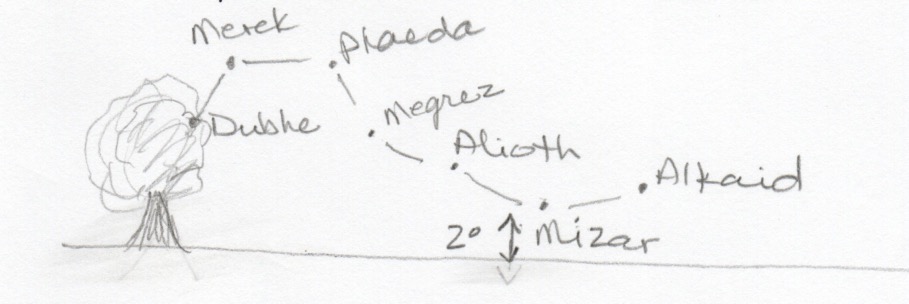 Merek
Phaeda
Dubhe
Megrez
Alioth
Alkaid
2° Mizar